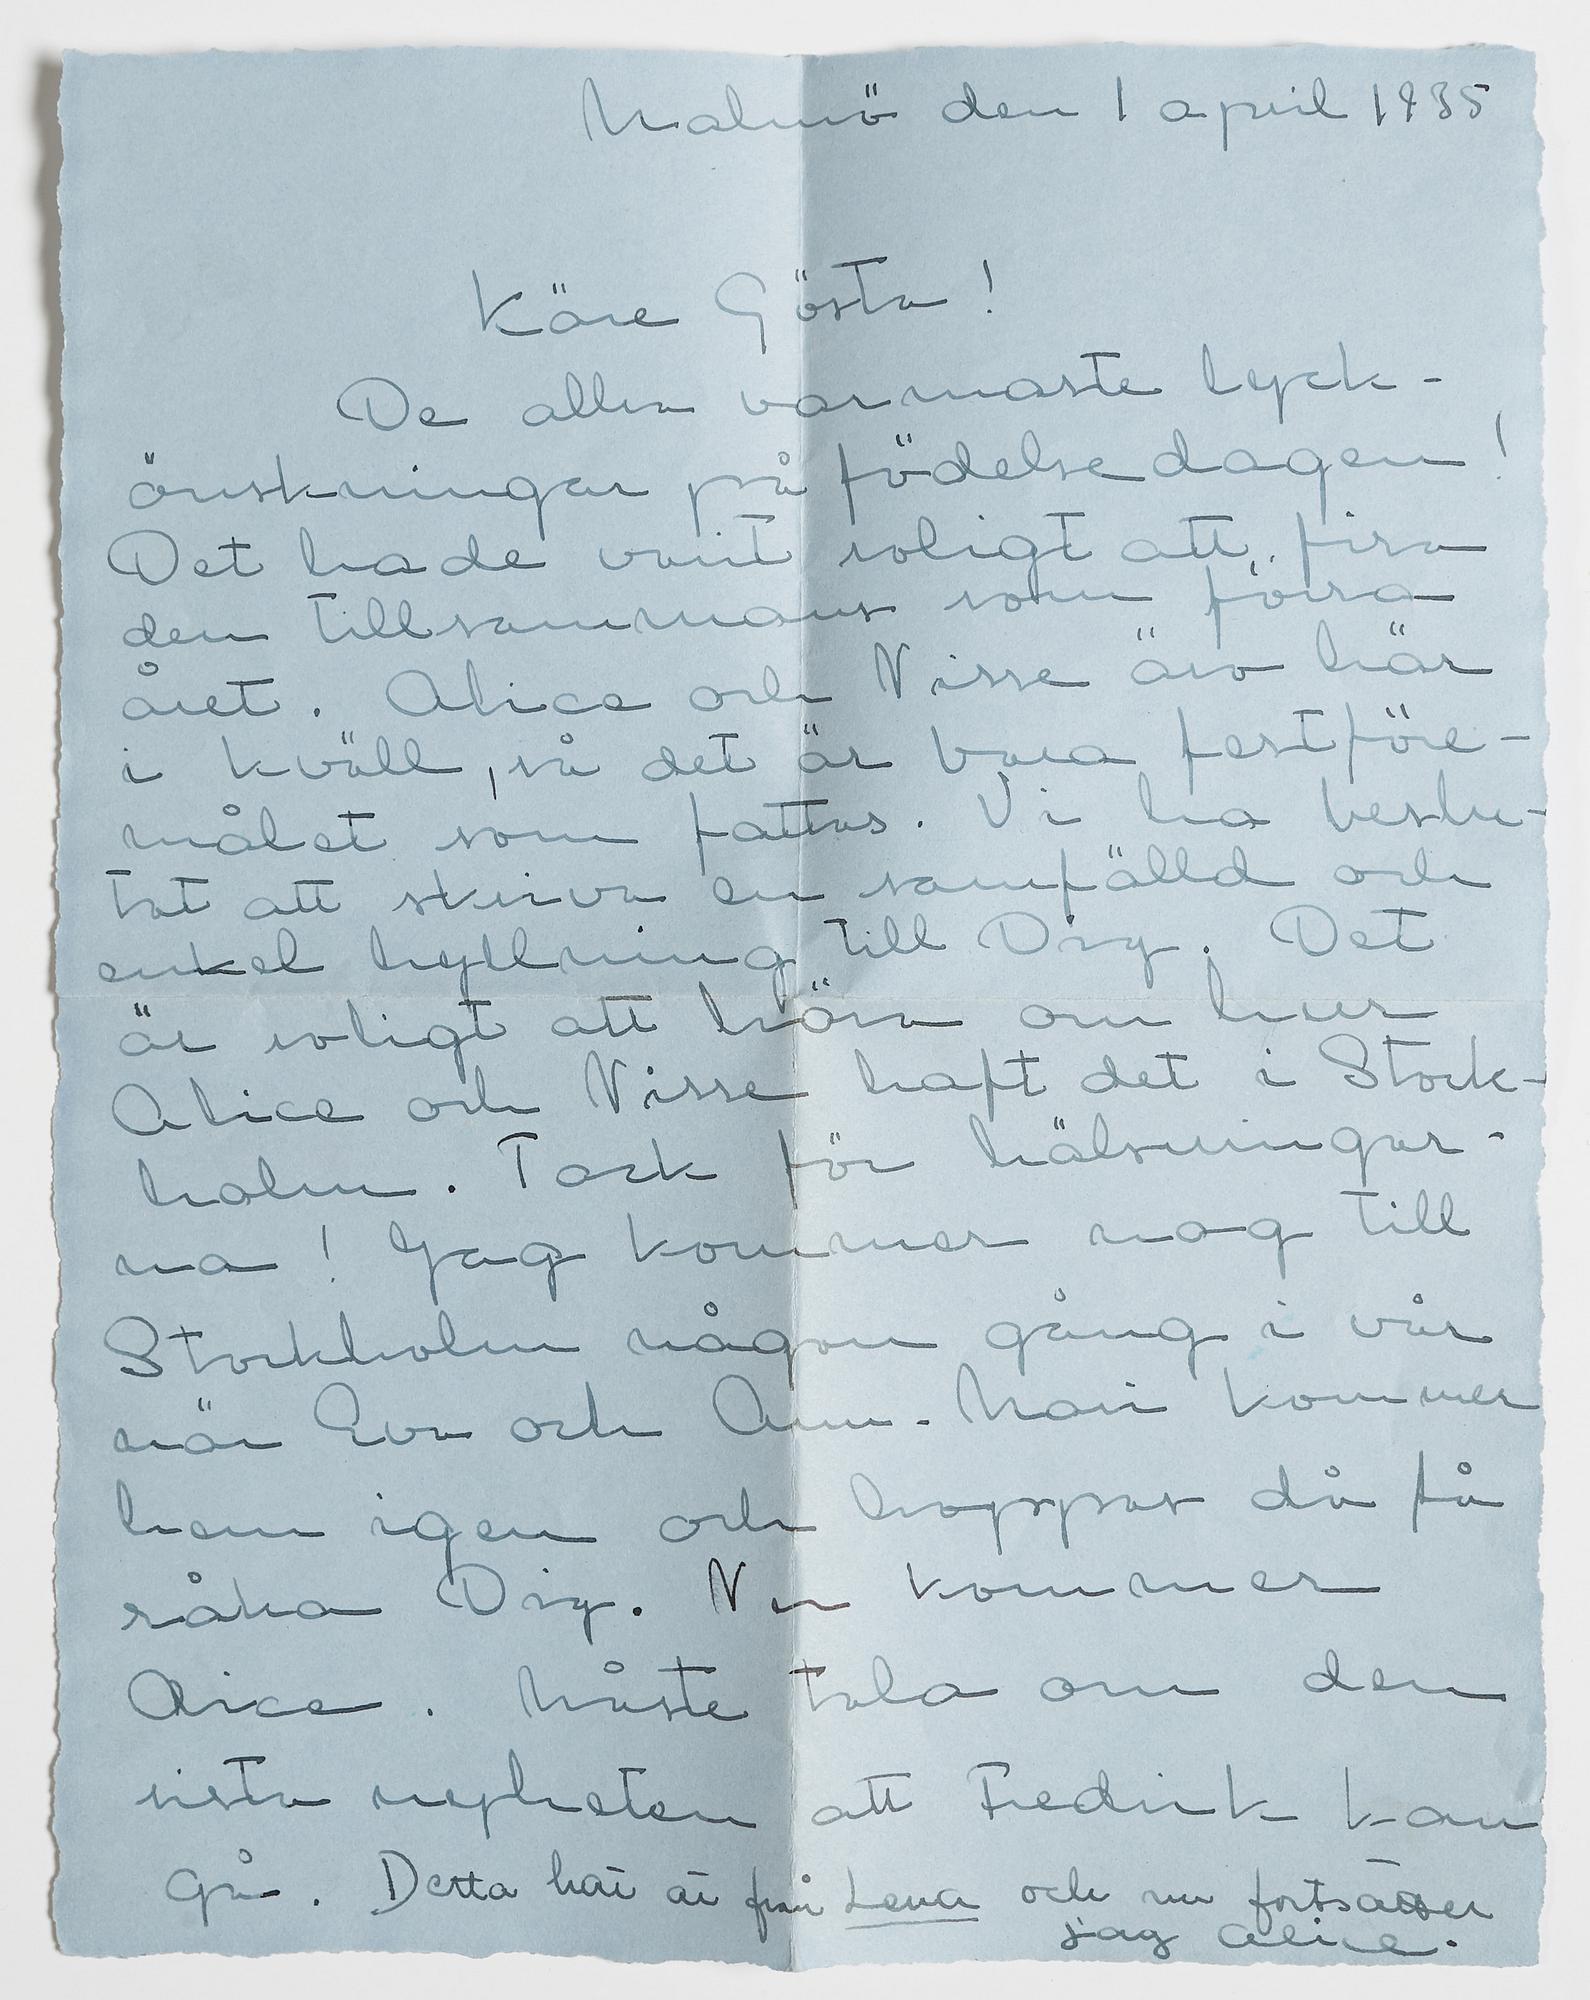 Malmö den 1 april 1935
Käre Gösta!
De allra varmaste lyck-
önskningar på födelsedagen!
Det hade varit roligt att fira
den tillsammans som förra
året. Alice och Nisse äro här
i kväll, så det är bara festföre-
målet som fattas. Vi ha beslu-
tat att skriva en samfälld och
enkel hyllning till Dig. Det
är roligt att höra om hur
Alice och Nisse haft det i Stock-
holm. Tack för hälsningar-
na! Jag kommer nog till
Stockholm någon gång i vår
när Eva och Ann-Mari kommer
hem igen och hoppas då få
råka Dig. Nu kommer
Alice. Måste tala om den
sista nyheten att Fredrik kan
gå. Detta här är från Lena och nu fortsätter
jag Alice.